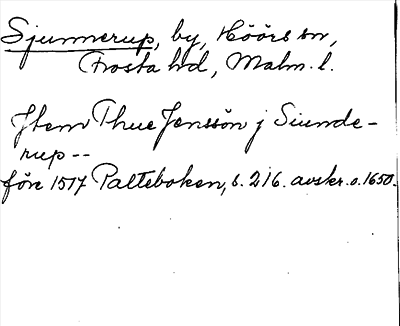 Sjunnerup, by, Höörs sn,
Frosta hd, Malm. l.
Jtem Thue Jenssön j Siunde-
rup--
före 1517 Palteboken, s. 216. avskr. o. 1650.